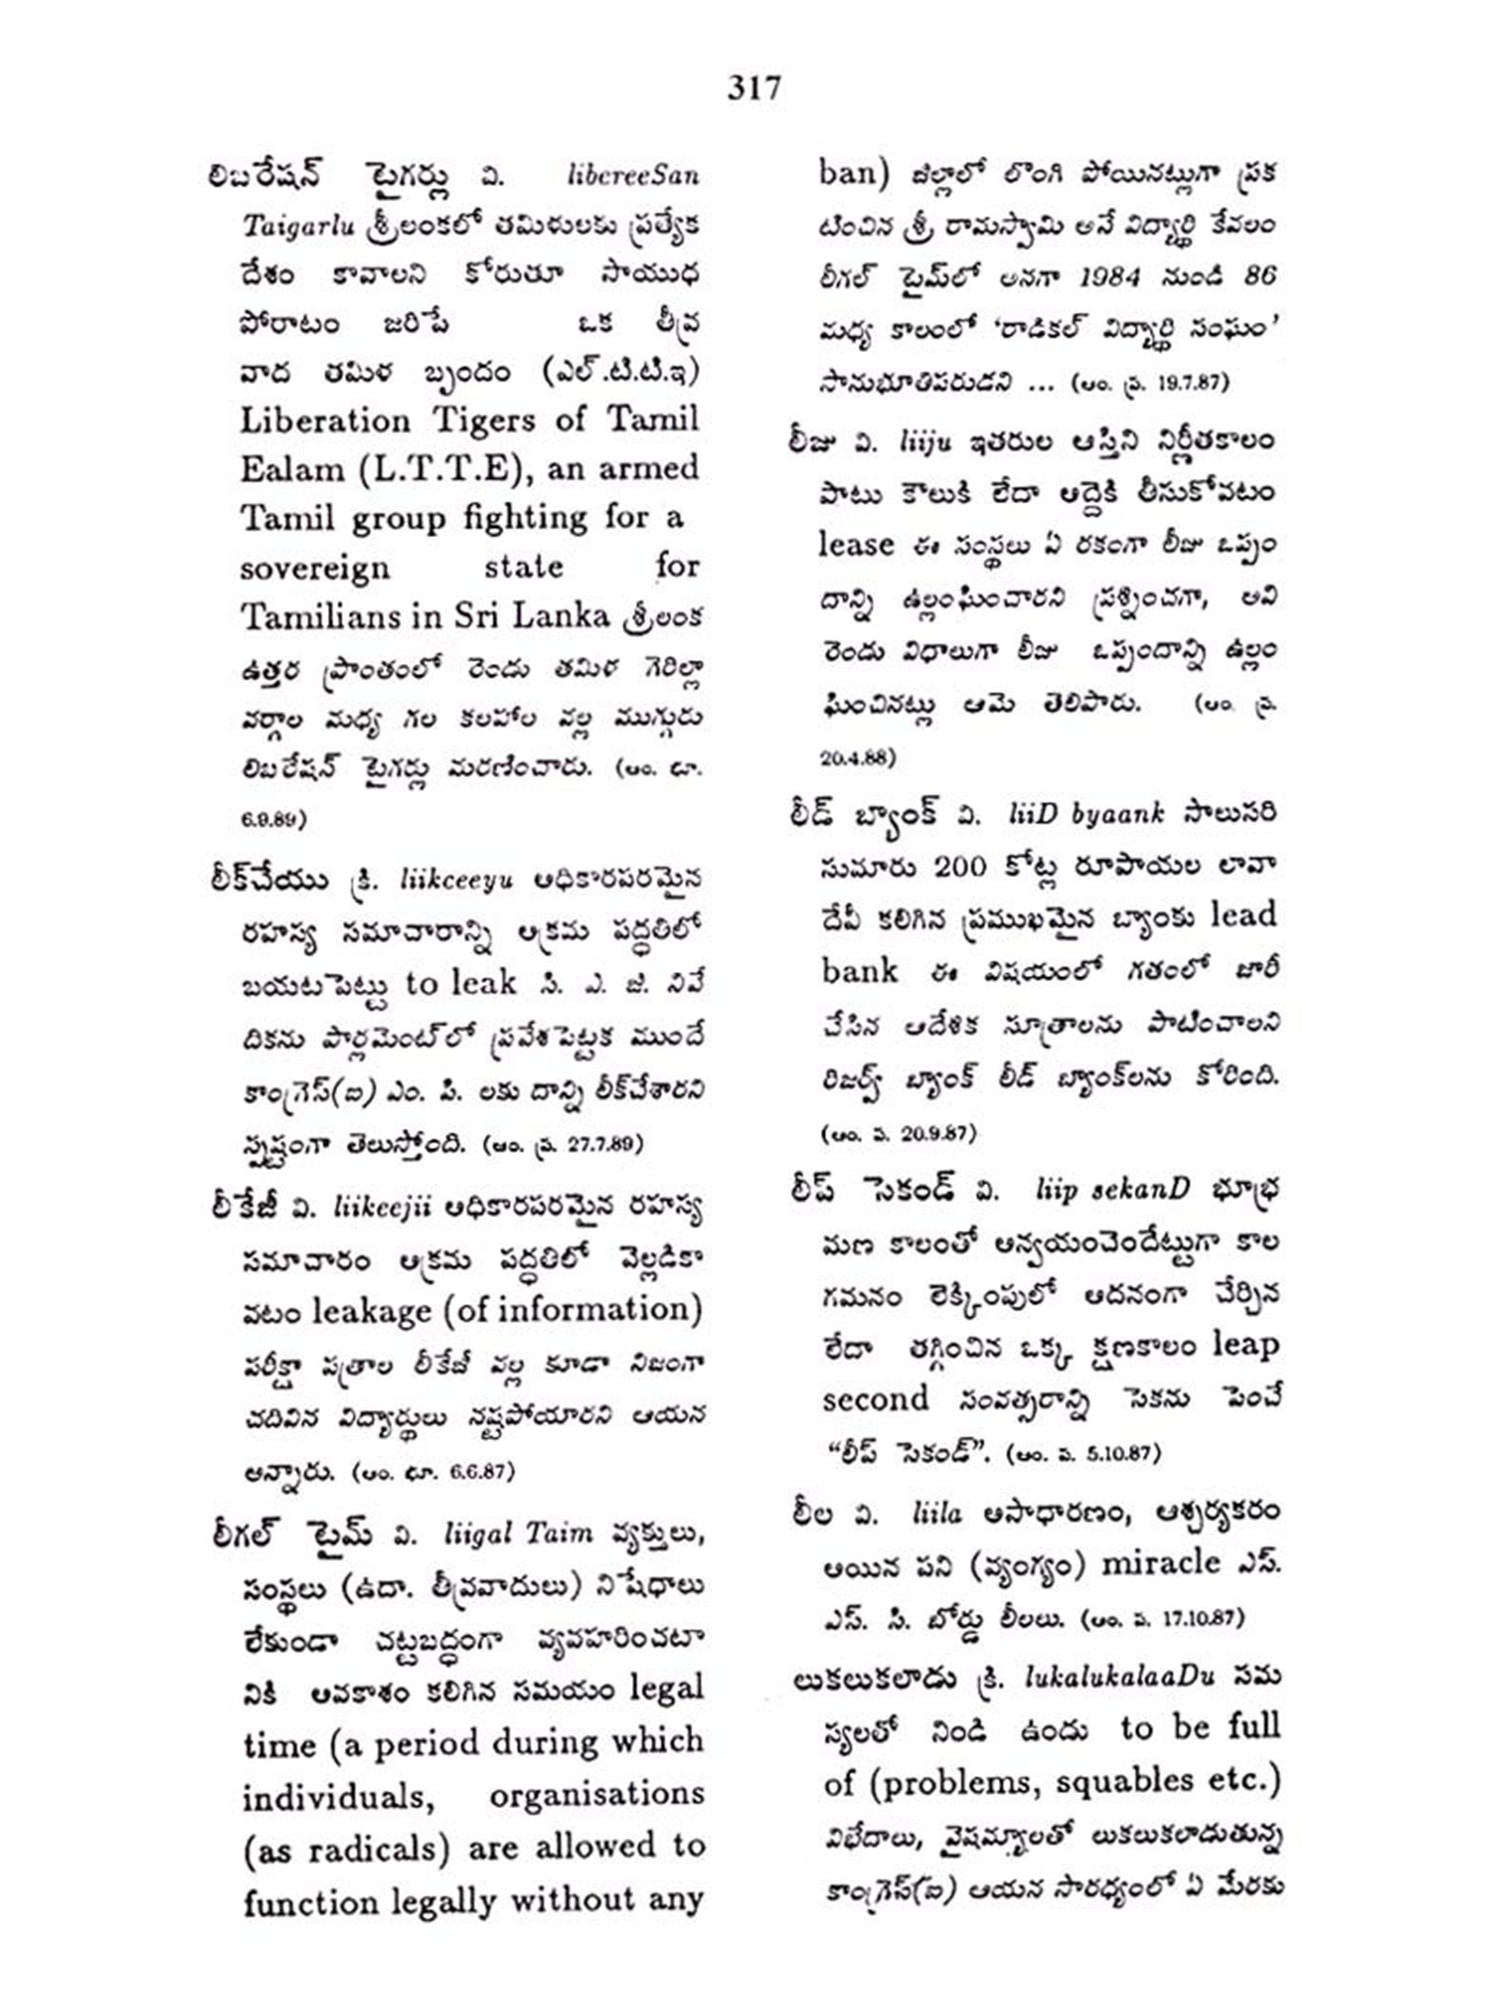 317
లిబరేషన్ టైగర్లు వి. libereeSan
Taigarlu శ్రీలంకలో తమిళులకు ప్రత్యేక
దేశం కావాలని కోరుతూ సాయుధ
పోరాటం జరిపే ఒక తీవ్ర
వాద తమిళ బృందం (ఎల్.టి.టి.ఇ)
Liberation Tigers of Tamil
Ealam (L.T.T.E), an armed
Tamil group fighting for a
sovereign state for
Tamilians in Sri Lanka శ్రీలంక
ఉత్తర ప్రాంతంలో రెండు తమిళ గెరిల్లా
వర్గాల మధ్య గల కలహాల వల్ల ముగ్గురు
లిబరేషన్ టైగర్లు మరణించారు. (ఆం. భూ.
6.9.89)
లీక్‌చేయు క్రి. liikceeyu అధికారపరమైన
రహస్య సమాచారాన్ని అక్రమ పద్ధతిలో
బయటపెట్టు to leak సి. ఎ. జి. నివే
దికను పార్లమెంట్‌లో ప్రవేశపెట్టక ముందే
కాంగ్రెస్(ఐ) ఎం. పి. లకు దాన్ని లీక్‌చేశారని
స్పష్టంగా తెలుస్తోంది. (ఆం. ప్ర. 27.7.89)
లీకేజీ వి. liikeejii అధికారపరమైన రహస్య
సమాచారం అక్రమ పద్ధతిలో వెల్లడికా
వటం leakage (of information)
పరీక్షా పత్రాల లీకేజీ వల్ల కూడా నిజంగా
చదివిన విద్యార్థులు నష్టపోయారని ఆయన
అన్నారు. (ఆం. భూ. 6.6.87)
లీగల్ టైమ్ వి. liigal Taim వ్యక్తులు,
సంస్థలు (ఉదా. తీవ్రవాదులు) నిషేధాలు
లేకుండా చట్టబద్ధంగా వ్యవహరించటా
నికి అవకాశం కలిగిన సమయం legal
time (a period during which
individuals, organisations
(as radicals) are allowed to
function legally without any
ban) జిల్లాలో లొంగి పోయినట్లుగా ప్రక
టించిన శ్రీ రామస్వామి అనే విద్యార్థి కేవలం
లీగల్ టైమ్‌లో అనగా 1984 నుండి 86
మధ్య కాలంలో ‘రాడికల్ విద్యార్థి సంఘం’
సానుభూతిపరుడని ... (ఆం. ప్ర. 19.7.87)
లీజు వి. liiju ఇతరుల ఆస్తిని నిర్ణీతకాలం
పాటు కౌలుకి లేదా అద్దెకి తీసుకోవటం
lease ఈ సంస్థలు ఏ రకంగా లీజు ఒప్పం
దాన్ని ఉల్లంఘించారని ప్రశ్నించగా, అవి
రెండు విధాలుగా లీజు ఒప్పందాన్ని ఉల్లం
ఘించినట్లు ఆమె తెలిపారు. (ఆం. ప్ర.
20.4.88)
లీడ్ బ్యాంక్ వి. liiD byaank సాలుసరి
సుమారు 200 కోట్ల రూపాయల లావా
దేవీ కలిగిన ప్రముఖమైన బ్యాంకు lead
bank ఈ విషయంలో గతంలో జారీ
చేసిన ఆదేశిక సూత్రాలను పాటించాలని
రిజర్వ్ బ్యాంక్ లీడ్ బ్యాంక్‌లను కోరింది.
(ఆం. ప. 20.9.87)
లీప్ సెకండ్ వి. liip sekanD భూభ్ర
మణ కాలంతో అన్వయంచెందేట్టుగా కాల
గమనం లెక్కింపులో అదనంగా చేర్చిన
లేదా తగ్గించిన ఒక్క క్షణకాలం leap
second సంవత్సరాన్ని సెకను పెంచే
“లీప్ సెకండ్”. (ఆం. ప. 5.10.87)
లీల వి. liila అసాధారణం, ఆశ్చర్యకరం
అయిన పని (వ్యంగ్యం) miracle ఎస్.
ఎస్. సి. బోర్డు లీలలు. (ఆం. ప. 17.10.87)
లుకలుకలాడు క్రి. lukalukalaaDu సమ
స్యలతో నిండి ఉండు to be full
of (problems, squables etc.)
విభేదాలు, వైషమ్యాలతో లుకలుకలాడుతున్న
కాంగ్రెస్(ఐ) ఆయన సారధ్యంలో ఏ మేరకు